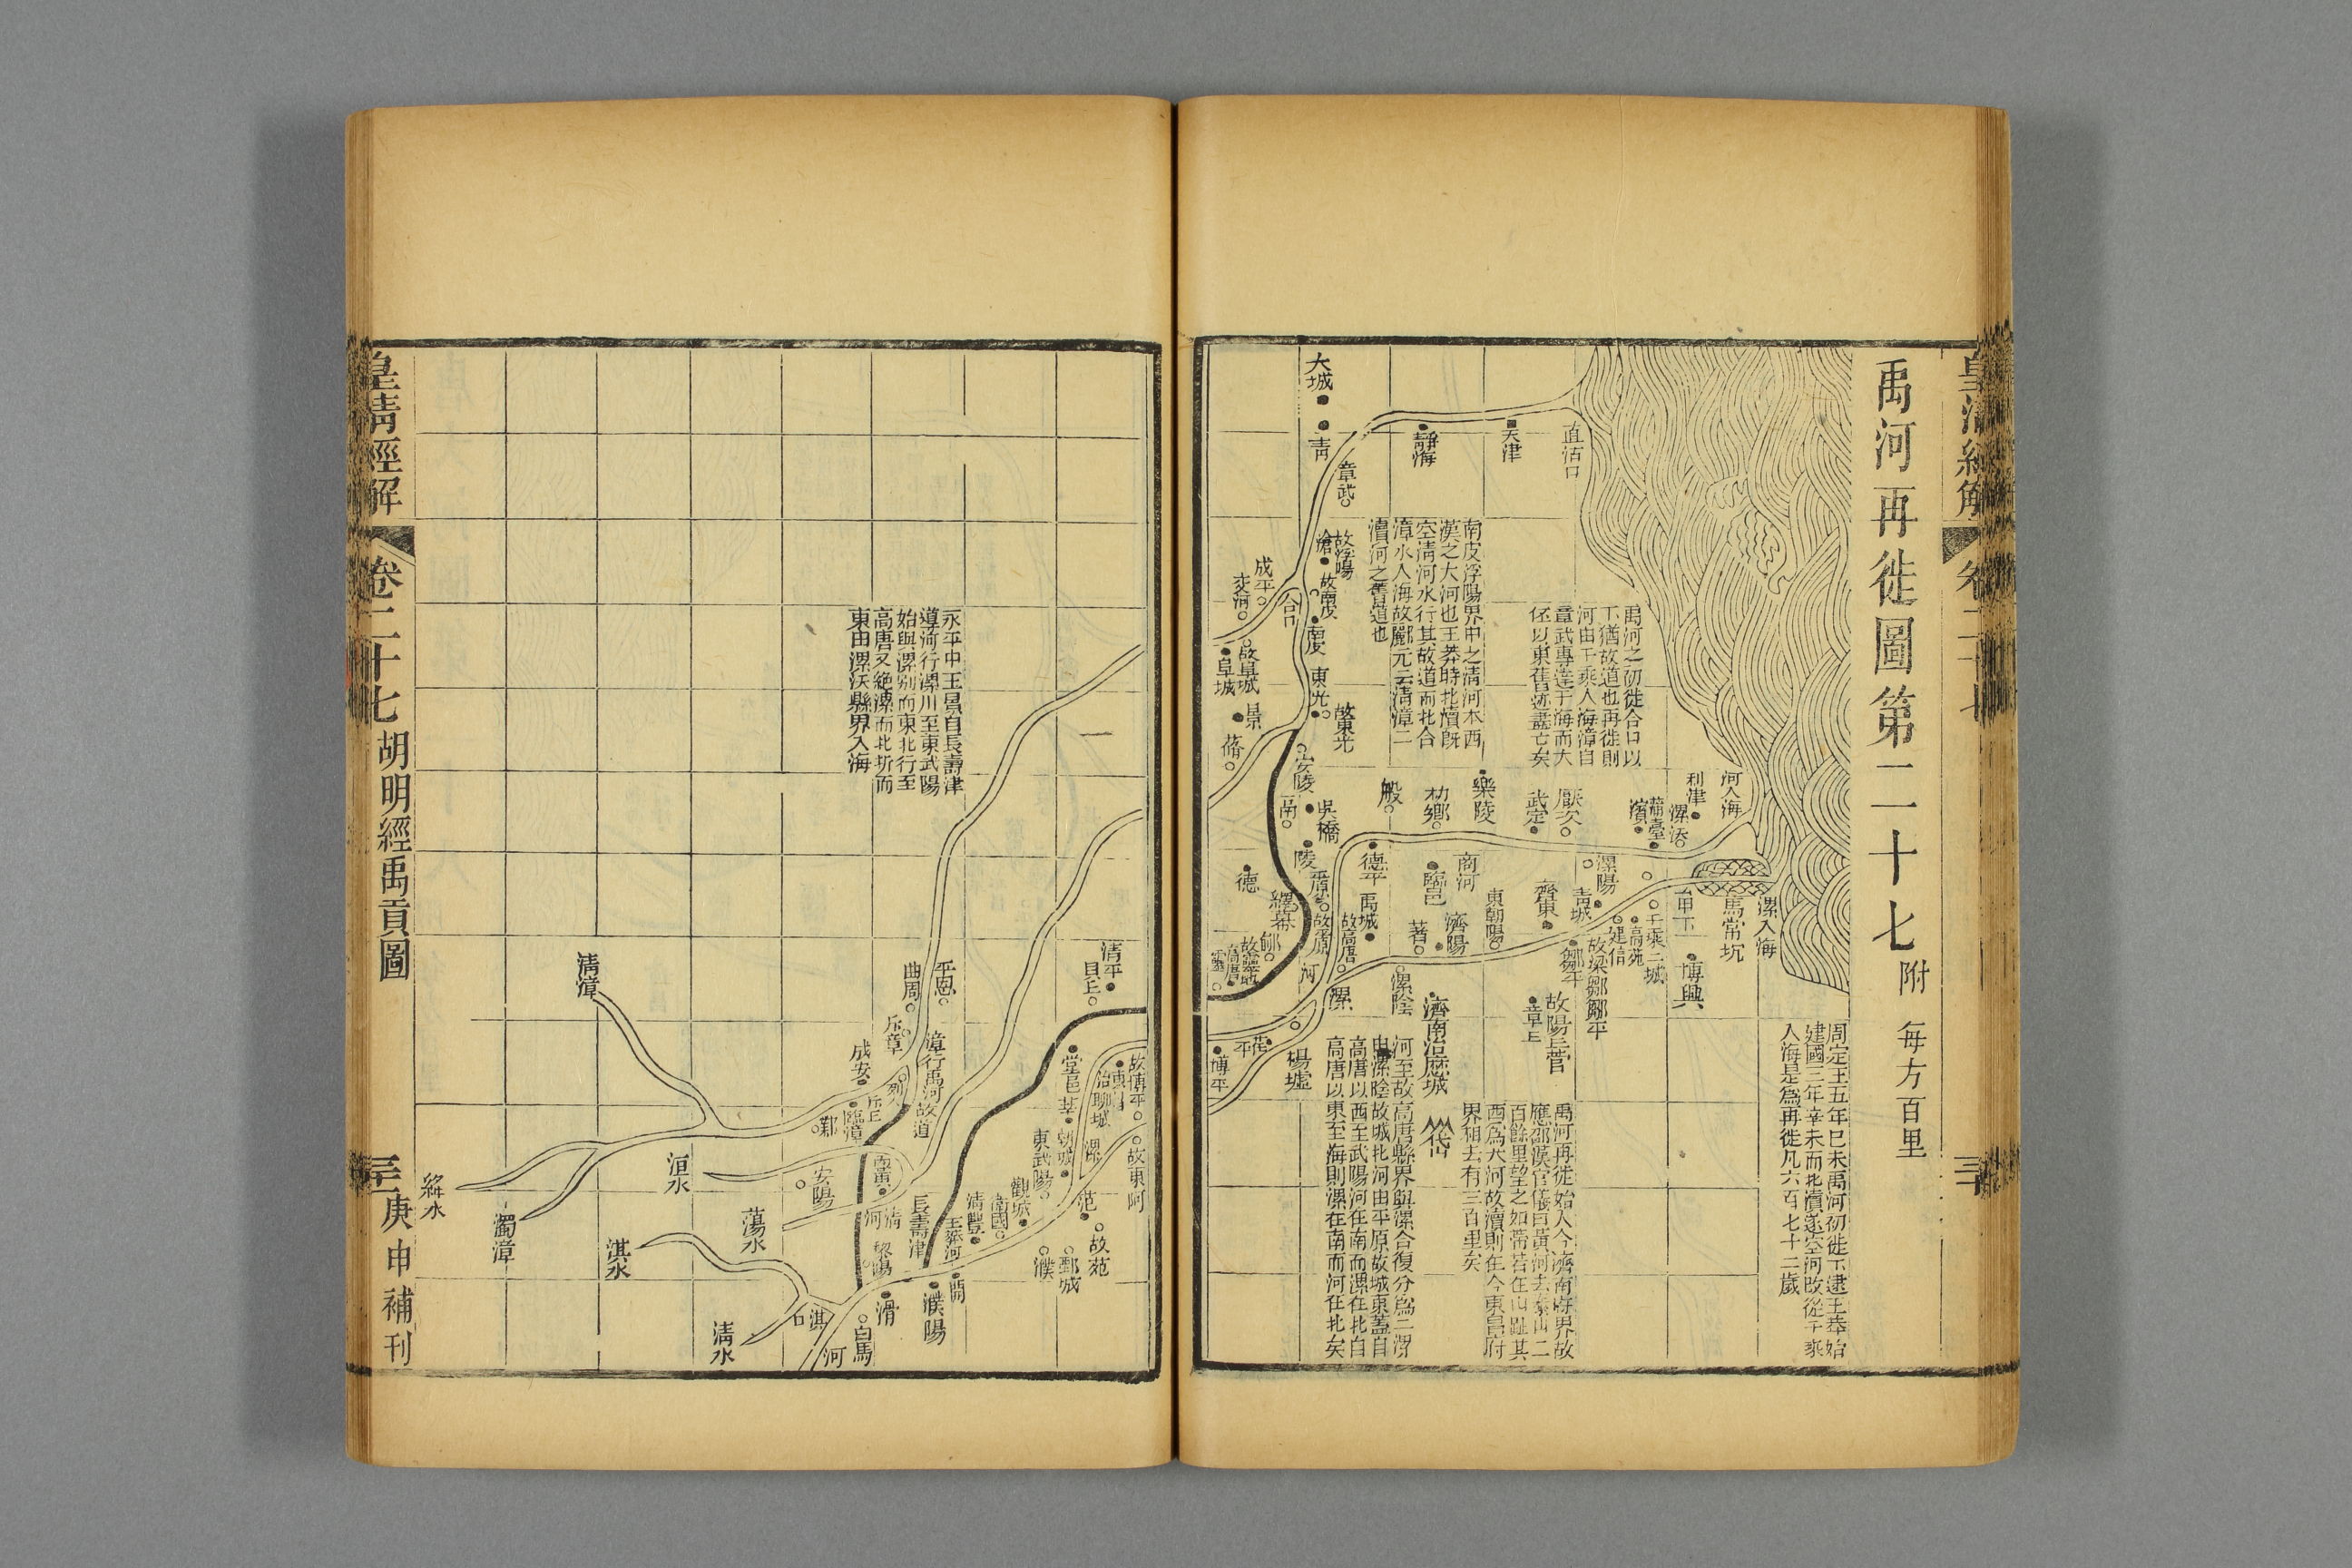 禹河再徙圖第二十七附
每方百里
周定王五年己未禹河初徙下逮王莽始
建國三年辛未而北瀆遂空河改從千乘
入海是為再徙凡六百七十二歲
河入海
漯入海
馬常坑
利津
漯沃
甲下
博興
蒲臺
濱
千乘二城
高苑
建信
禹河之初徙合口以
下猶故道也再徙則
河由千乘入海漳自
章武專達于海而大
伾以東舊迹盡亡矣
直沽口
天津
靜海
大城
青
章武
南皮浮陽界中之清河本西
漢之大河也王莽時北瀆旣
空清河水行其故道而北合
漳水入海故酈元云清漳二
瀆河之舊道也
故浮陽
滄
故南皮
南皮
成平
交河
合口
故阜城
阜城
東光
故東光
景
蓨
安陵
吳橋
般
朸鄉
樂陵
厭次
武定
漯陽
青城
齊東
東朝陽
商河
臨邑
德平
陵
平原
德
繹幕
禹城
故平原
故高唐
濟陽
著
鄒平
故梁鄒鄒平
故陽丘菅
章丘
濟南治歷城
岱
漯陰
漯
河
楊墟
茌平
博平
禹河再徙始入今濟南府界故
應邵漢官儀曰黃河去泰山二
百餘里望之如帶若在山趾其
西為大河故瀆則在今東昌府
界相去有三百里矣
河至故高唐縣界與漯合復分為二漯
由漯陰故城北河由平原故城東蓋自
高唐以西至武陽河在南而漯在北自
高唐以東至海則漯在南而河在北矣
皇清經解
卷二十七
胡明經禹貢圖
三
庚申補刊
永平中王景自長壽津
導河行漯川至東武陽
始與漯別而東北行至
高唐又絶漯而北折而
東由漯沃縣界入海
清平
貝丘
平恩
曲周
斥章
漳行禹河故道
成安
列人
斥丘
臨漳
鄴
堂邑
莘
故博平
東昌治聊城
漯
朝城
東武陽
故東阿
范
故范
觀城
清豐
鄄城
濮
王莽河
長壽津
開
濮陽
滑
黎陽
白馬
河
清河
內黃
安陽
清漳
洹水
蕩水
淇水
淇口
清水
濁漳
絳水